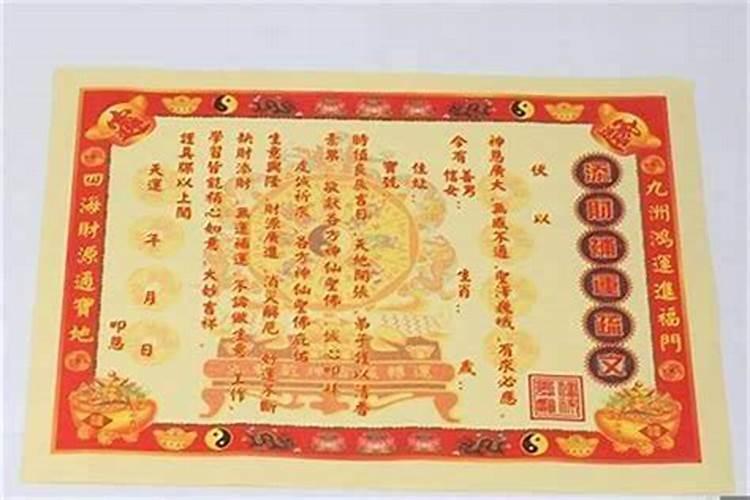 九洲鴻運進福門
添財補運疏文
伏以
神恩廣大 無感不通 聖澤巍峨 有求必應
今有善男信女： 生肖： 歲：
住址：
寶號
時值良辰吉日 天地開張 弟子僅以清香
素果 敬獻各方神仙聖佛 誠心叩拜
虔誠祈求 各方神仙聖佛庇佑
生意興隆 財源廣進 消災解厄 好運不斷
缺財添財 無運補運 不論做生意 工作、
學習皆能稱心如意 大妙吉祥
謹具疏以上聞
天運 年 月 日
叩恩
四海財源通寶地